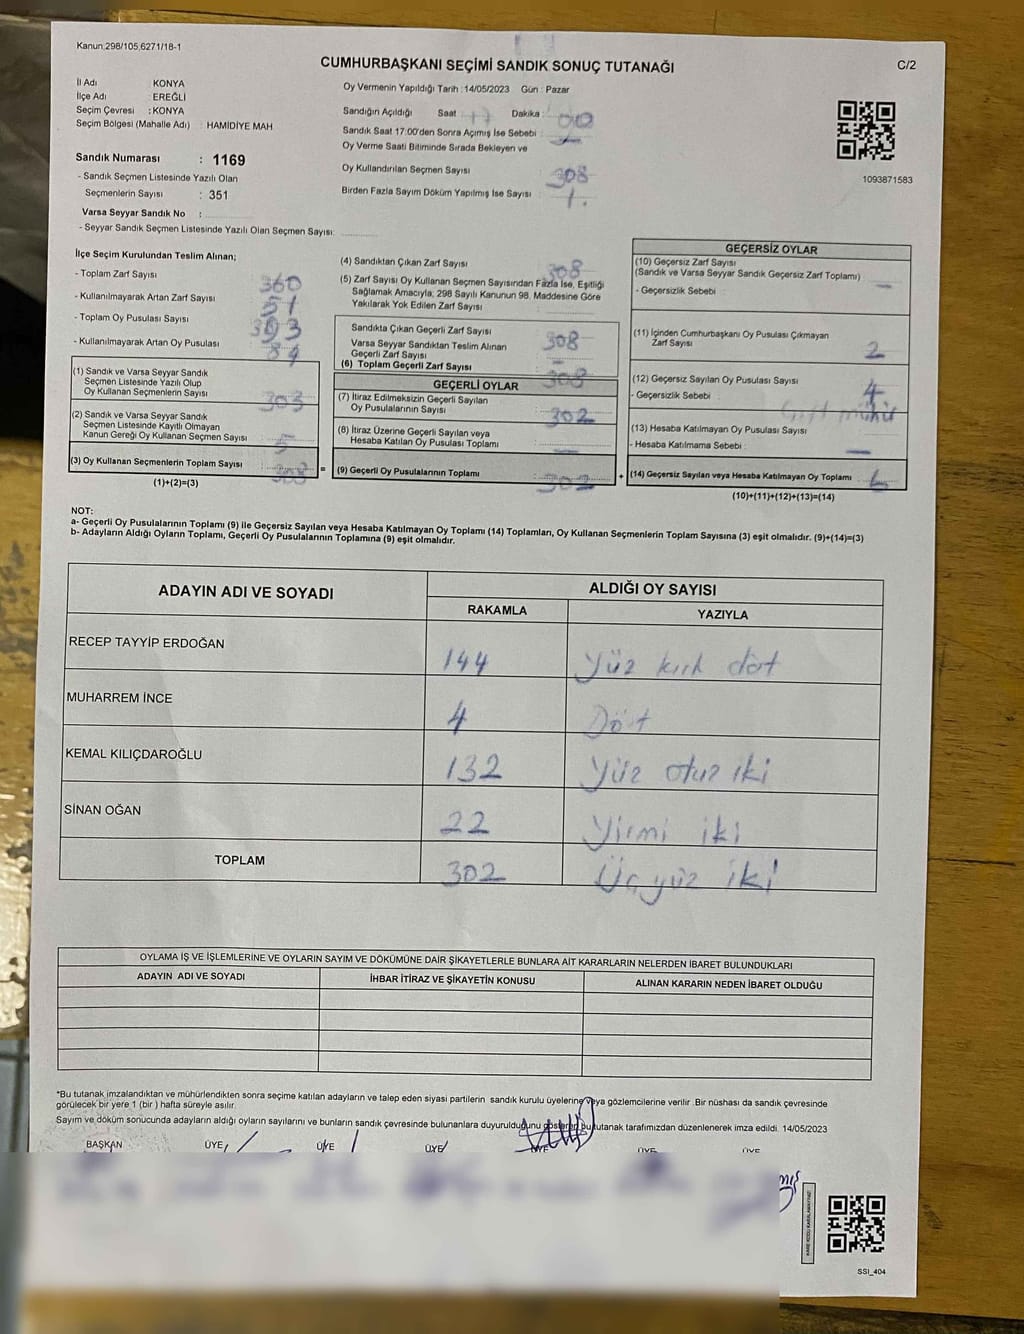 Kanun:298/105,6271/18-1
CUMHURBAŞKANI SEÇİMİ SANDIK SONUÇ TUTANAĞI
C/2
İl Adı KONYA
İlçe Adı : EREĞLİ
Seçim Çevresi : KONYA
Seçim Bölgesi (Mahalle Adı) : HAMİDİYE MAH
Sandık Numarası : 1169
- Sandık Seçmen Listesinde Yazılı Olan
Seçmenlerin Sayısı : 351
Varsa Seyyar Sandık No :
- Seyyar Sandık Seçmen Listesinde Yazılı Olan Seçmen Sayısı:
Oy Vermenin Yapıldığı Tarih :14/05/2023 Gün : Pazar
Sandığın Açıldığı Saat : 17 Dakika : 00
Sandık Saat 17:00'den Sonra Açımış İse Sebebi :
Oy Verme Saati Bitiminde Sırada Bekleyen ve
Oy Kullandırılan Seçmen Sayısı : 308
Birden Fazla Sayım Döküm Yapılmış İse Sayısı : 1.
1093871583
İlçe Seçim Kurulundan Teslim Alınan;
- Toplam Zarf Sayısı 360
- Kullanılmayarak Artan Zarf Sayısı 51
- Toplam Oy Pusulası Sayısı
- Kullanılmayarak Artan Oy Pusulası
(1) Sandık ve Varsa Seyyar Sandık
Seçmen Listesinde Yazılı Olup
Oy Kullanan Seçmenlerin Sayısı 303
(2) Sandık ve Varsa Seyyar Sandık
Seçmen Listesinde Kayıtlı Olmayan
Kanun Gereği Oy Kullanan Seçmen Sayısı 5
(3) Oy Kullanan Seçmenlerin Toplam Sayısı : 308 =
(1)+(2)=(3)
(4) Sandıktan Çıkan Zarf Sayısı : 308
(5) Zarf Sayısı Oy Kullanan Seçmen Sayısından Fazla İse, Eşitliği
Sağlamak Amacıyla; 298 Sayılı Kanunun 98. Maddesine Göre
Yakılarak Yok Edilen Zarf Sayısı :
Sandıkta Çıkan Geçerli Zarf Sayısı 308
Varsa Seyyar Sandıktan Teslim Alınan
Geçerli Zarf Sayısı –
(6) Toplam Geçerli Zarf Sayısı 308
GEÇERLİ OYLAR
(7) İtiraz Edilmeksizin Geçerli Sayılan
Oy Pusulalarının Sayısı : 302
(8) İtiraz Üzerine Geçerli Sayılan veya
Hesaba Katılan Oy Pusulası Toplamı : –
(9) Geçerli Oy Pusulalarının Toplamı 302 +
GEÇERSİZ OYLAR
(10) Geçersiz Zarf Sayısı
(Sandık ve Varsa Seyyar Sandık Geçersiz Zarf Toplamı) –
- Geçersizlik Sebebi :
(11) İçinden Cumhurbaşkanı Oy Pusulası Çıkmayan
Zarf Sayısı : 2
(12) Geçersiz Sayılan Oy Pusulası Sayısı : 4
- Geçersizlik Sebebi : Çift mühür
(13) Hesaba Katılmayan Oy Pusulası Sayısı :
- Hesaba Katılmama Sebebi : –
(14) Geçersiz Sayılan veya Hesaba Katılmayan Oy Toplamı : 6
(10)+(11)+(12)+(13)=(14)
NOT:
a- Geçerli Oy Pusulalarının Toplamı (9) ile Geçersiz Sayılan veya Hesaba Katılmayan Oy Toplamı (14) Toplamları, Oy Kullanan Seçmenlerin Toplam Sayısına (3) eşit olmalıdır. (9)+(14)=(3)
b- Adayların Aldığı Oyların Toplamı, Geçerli Oy Pusulalarının Toplamına (9) eşit olmalıdır.
ADAYIN ADI VE SOYADI ALDIĞI OY SAYISI
RAKAMLA YAZIYLA
RECEP TAYYİP ERDOĞAN 144 Yüz kırk dört
MUHARREM İNCE 4 Dört
KEMAL KILIÇDAROĞLU 132 Yüz otuz iki
SİNAN OĞAN 22 Yirmi iki
TOPLAM 302 Üçyüz iki
OYLAMA İŞ VE İŞLEMLERİNE VE OYLARIN SAYIM VE DÖKÜMÜNE DAİR ŞİKAYETLERLE BUNLARA AİT KARARLARIN NELERDEN İBARET BULUNDUKLARI
ADAYIN ADI VE SOYADI İHBAR İTİRAZ VE ŞİKAYETİN KONUSU ALINAN KARARIN NEDEN İBARET OLDUĞU
*Bu tutanak imzalandıktan ve mühürlendikten sonra seçime katılan adayların ve talep eden siyasi partilerin sandık kurulu üyelerine veya gözlemcilerine verilir .Bir nüshası da sandık çevresinde
görülecek bir yere 1 (bir ) hafta süreyle asılır.
Sayım ve döküm sonucunda adayların aldığı oyların sayılarını ve bunların sandık çevresinde bulunanlara duyurulduğunu gösteren bu tutanak tarafımızdan düzenlenerek imza edildi. 14/05/2023
BAŞKAN ÜYE ÜYE ÜYE ÜYE ÜYE ÜYE
SSI_404